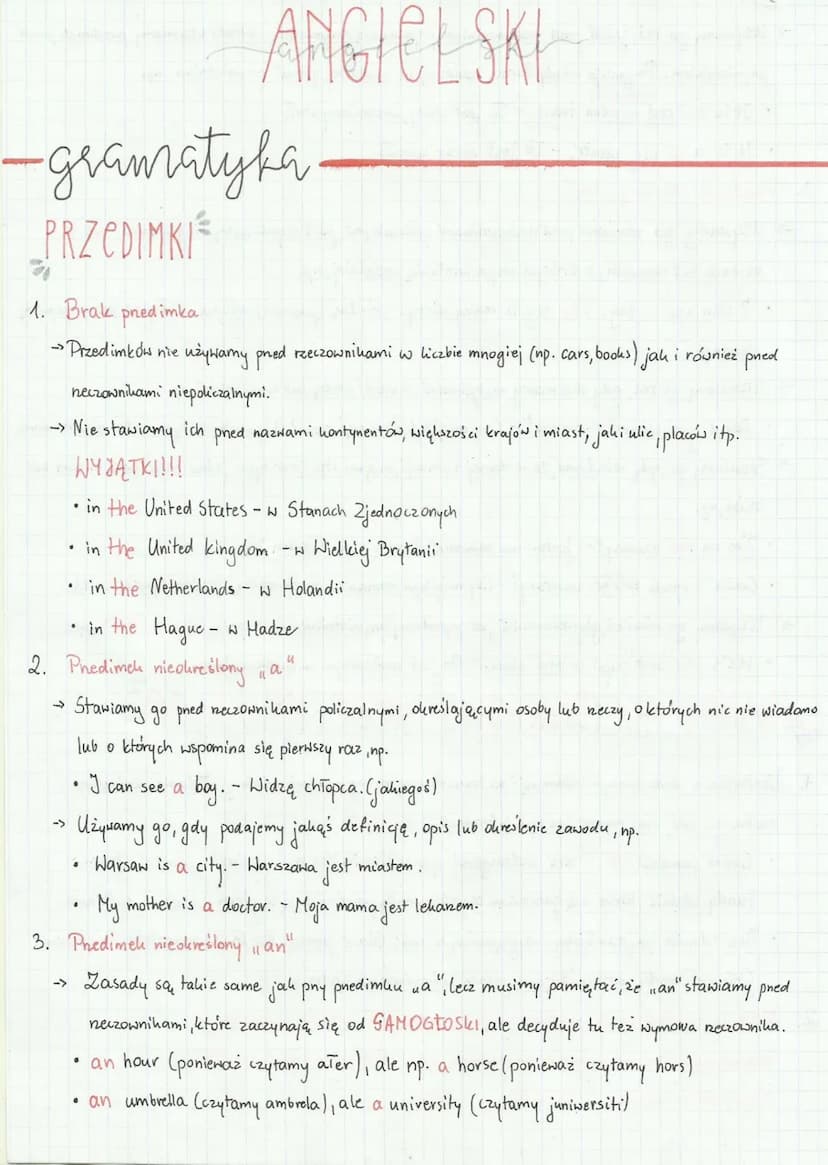 ANGIELSKI
angielski
gramatyka
PRZEDIMKI
1. Brak przedimka
→ Przedimków nie używamy przed rzeczownikami w liczbie mnogiej (np. cars, books) jak i również przed
rzeczownikami niepoliczalnymi.
→ Nie stawiamy ich przed nazwami kontynentów, większości krajów i miast, jak i ulic, placów itp.
WYJĄTKI!!!
• in the United States - w Stanach Zjednoczonych
• in the United kingdom - w Wielkiej Brytanii
• in the Netherlands - w Holandii
• in the Hague - w Hadze
2. Przedimek nieokreślony „a"
→ Stawiamy go przed rzeczownikami policzalnymi, określającymi osoby lub rzeczy, o których nic nie wiadomo
lub o których wspomina się pierwszy raz, np.
• I can see a boy. - Widzę chłopca. (jakiegoś)
→ Używamy go, gdy podajemy jakąś definicję, opis lub określenie zawodu, np.
• Warsaw is a city. - Warszawa jest miastem.
• My mother is a doctor. - Moja mama jest lekarzem.
3. Przedimek nieokreślony „an"
→ Zasady są takie same jak przy przedimku „a", lecz musimy pamiętać, że „an" stawiamy przed
rzeczownikami, które zaczynają się od SAMOGŁOSKI, ale decyduje tu też wymowa rzeczownika.
• an hour (ponieważ czytamy ałer), ale np. a horse (ponieważ czytamy hors)
• an umbrella (czytamy ambrela), ale a university (czytamy juniwersiti)